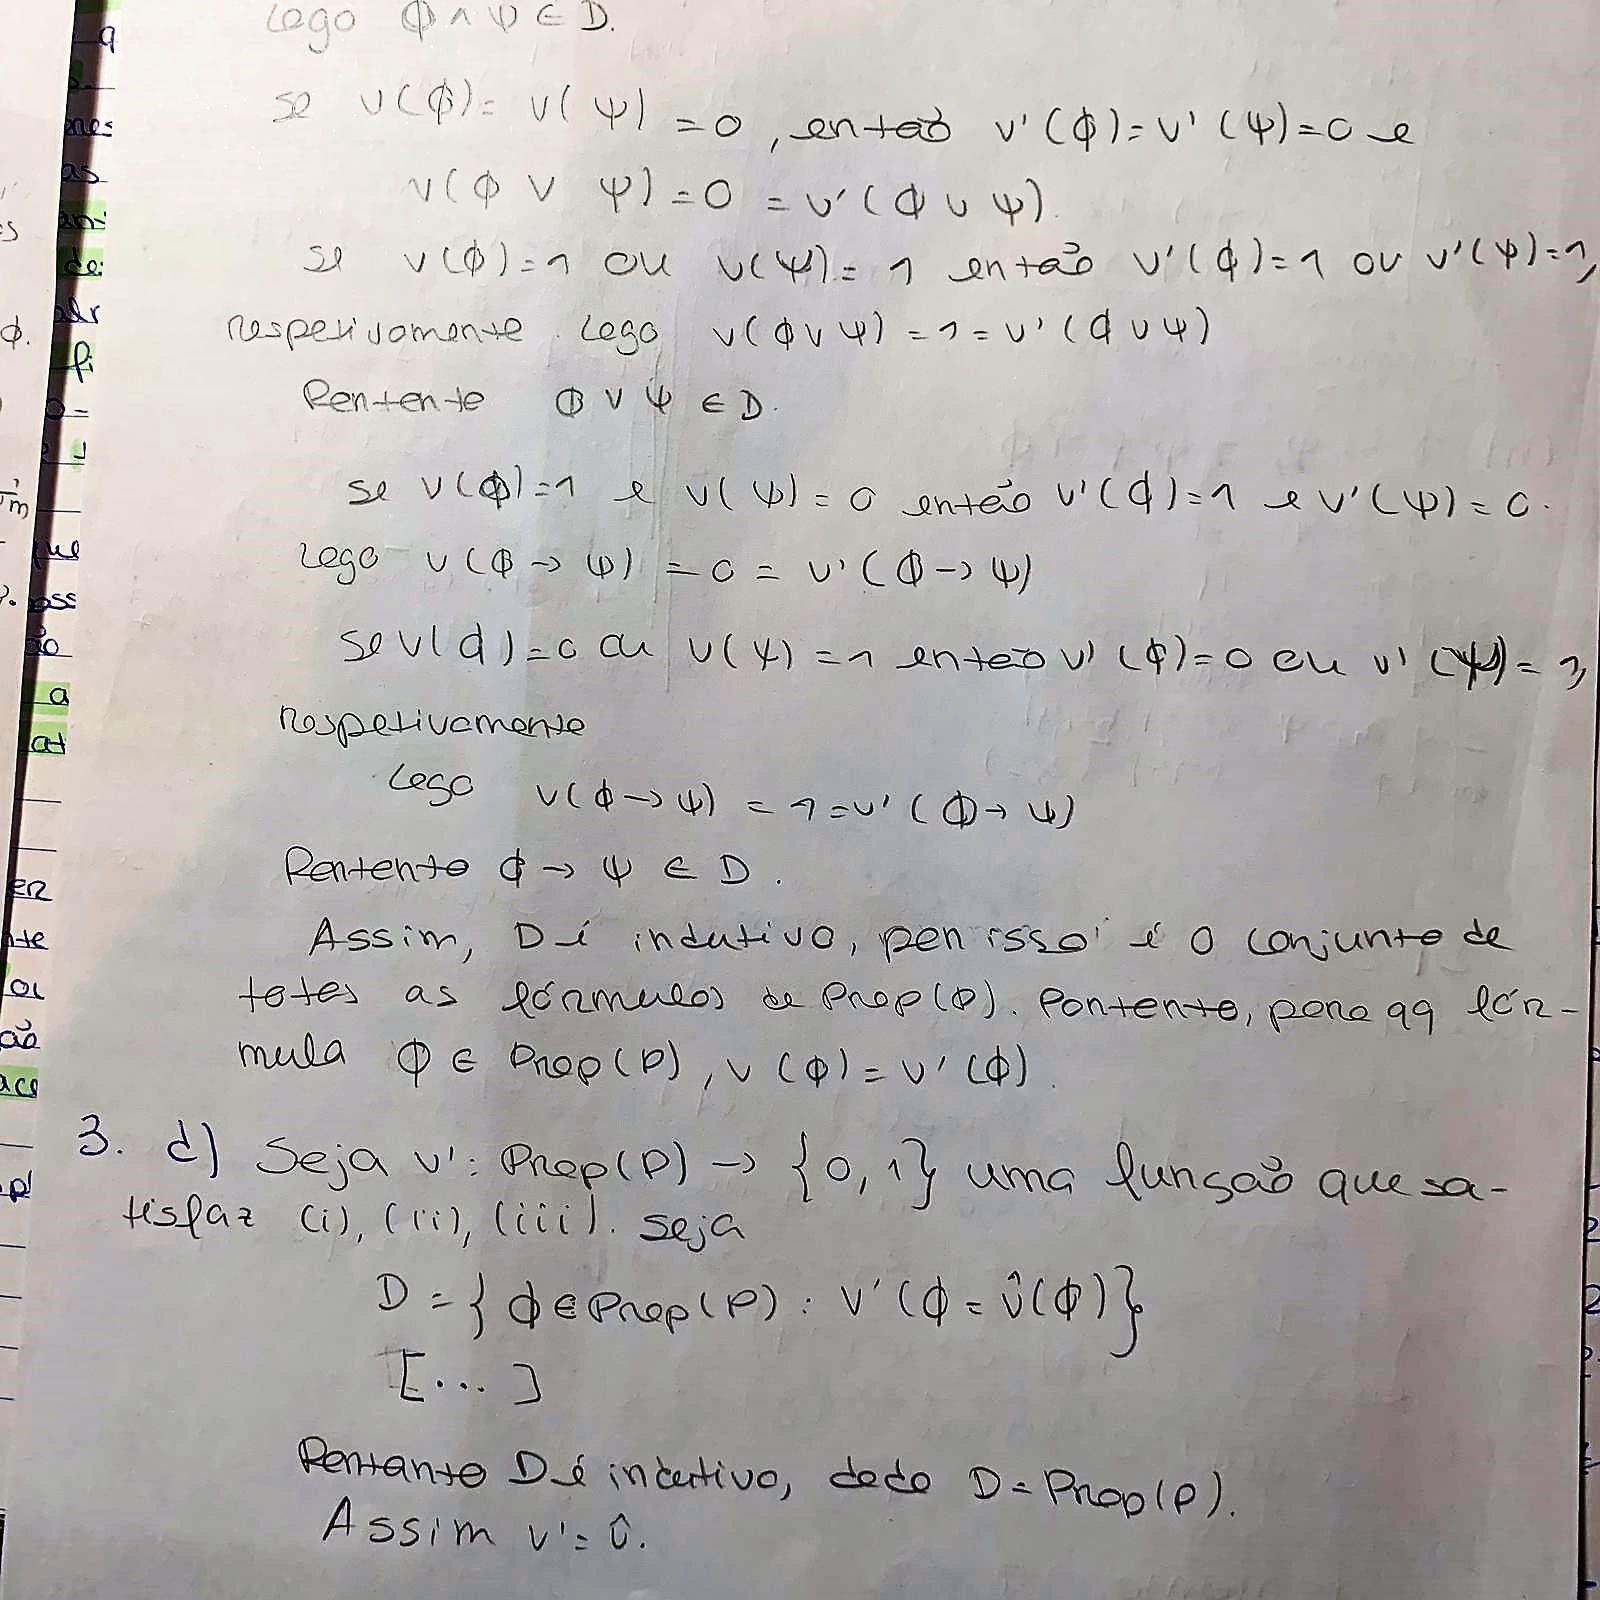 Logo ϕ ∧ ψ ∈ D.
se v(ϕ) = v(ψ) = 0, então v'(ϕ) = v'(ψ) = 0 e
v(ϕ ∨ ψ) = 0 = v'(ϕ ∨ ψ).
se v(ϕ) = 1 ou v(ψ) = 1 então v'(ϕ) = 1 ou v'(ψ) = 1,
respetivamente. Logo v(ϕ ∨ ψ) = 1 = v'(ϕ ∨ ψ)
Portanto ϕ ∨ ψ ∈ D.
se v(ϕ) = 1 e v(ψ) = 0 então v'(ϕ) = 1 e v'(ψ) = 0.
Logo v(ϕ → ψ) = 0 = v'(ϕ → ψ)
se v(ϕ) = 0 ou v(ψ) = 1 então v'(ϕ) = 0 ou v'(ψ) = 1,
respetivamente
Logo v(ϕ → ψ) = 1 = v'(ϕ → ψ)
Portanto ϕ → ψ ∈ D.
Assim, D é indutivo, por isso é o conjunto de
totas as fórmulas de Prop(P). Portanto, para qq fór-
mula ϕ ∈ Prop(P), v(ϕ) = v'(ϕ).
3. d) Seja v': Prop(P) → {0, 1} uma função que sa-
tisfaz (i), (ii), (iii). seja
D = { ϕ ∈ Prop(P) : v'(ϕ = v̂(ϕ) }
[...]
Portanto D é indutivo, dado D = Prop(P).
Assim v' = v̂.